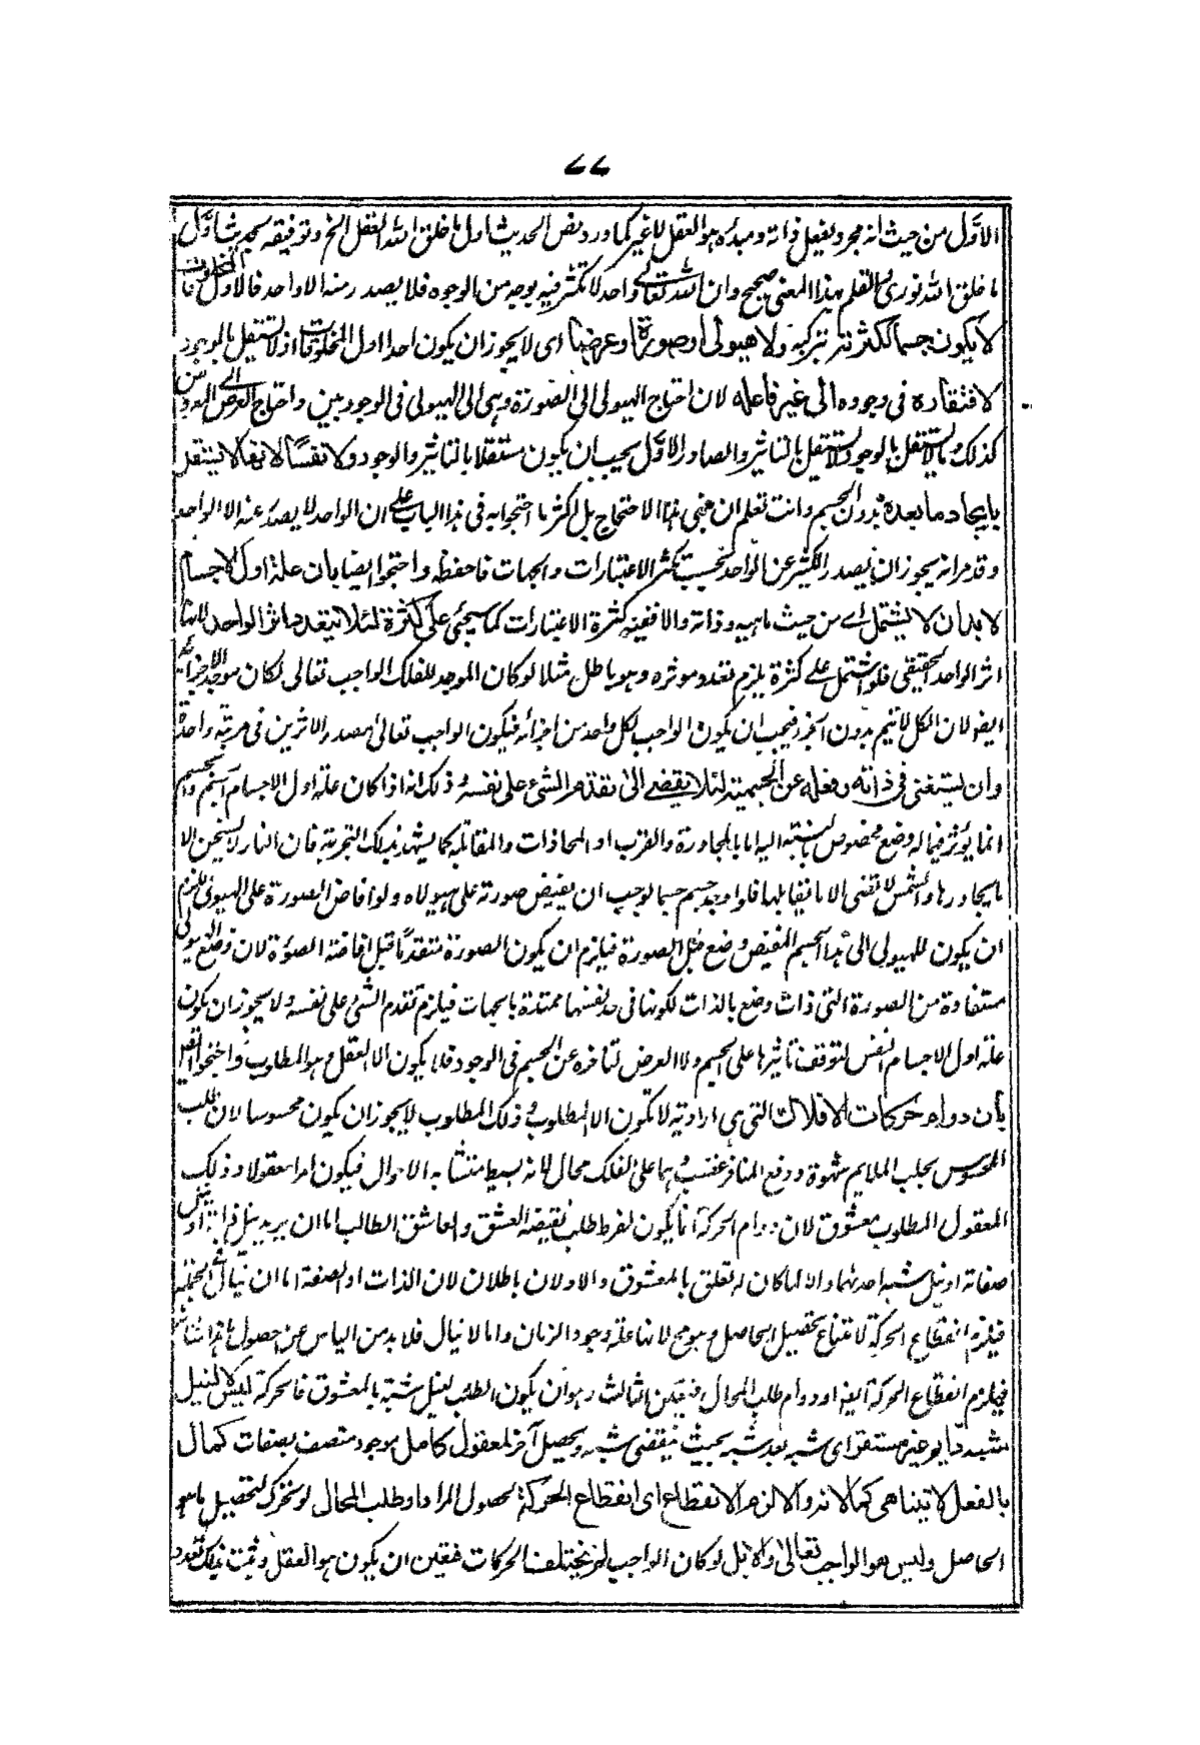 ٧٧
الاول من حيث انه مجرد يفعل ذاته ومبدأه هو العقل لا غير كما ورد بنص الحديث اول ما خلق الله العقل الخ وتوفيقه بحديث اول
ما خلق الله نوري القلم بهذا المعنى صحيح وان الله تعالى واحد لا تكثر فيه بوجه من الوجوه فلا يصدر منه الا واحد فالاول المخلوقات
لا يكون جسما لكثرته بتركبه ولا هيولى او صورة او عرضا اى لا يجوز ان يكون احدها اول المخلوقات اذ لا تستقل بالوجود
لافتقاره فى وجوده الى غير فاعله لان احتاج الهيولى الى الصورة وهى الى الهيولى فى الوجود بين واحتاج العرض الى
كذلك وما لا يستقل بالوجود لا يستقل بالتاثير والصادر الاول يجب ان يكون مستقلا بالتاثير والوجود ولا نفسا لانها لا تستقل
بايجاد ما بعده بدون الجسم وانت تعلم ان مبنى هذا الاحتجاج بل اكثر ما احتجوا به فى هذا الباب على ان الواحد لا يصدر عنه الا الواحد
وقد مر انه يجوز ان يصدر الكثير عن الواحد بحسب تكثر الاعتبارات والجهات فاحفظه واحتجوا ايضا بان علة اول الاجسام
لا بد ان لا يشتمل اے من حيث ماهيه وذاته والا ففيه كثرة الاعتبارات كما سيجئى على كثرة لئلا يتعدد
اثر الواحد الحقيقى فلو اشتمل على كثرة يلزم تعدد موثره وهو باطل مثلا لو كان الموجد للفلك الواجب تعالى لكان موجد الاجزائه
ايضا لان الكل لا يتم بدون الجزء فيجب ان يكون الواجب لكل واحد من اجزائه فيكون الواجب تعالى مصدر الاثرين فى مرتبة واحدة
وان يستغنى فى ذاته وفعله عن الجسمية لئلا يفضے الى تقدم الشئ على نفسه وذلك انه اذا كان علة اول الاجسام الجسم والجسم
انما يؤثر فيما له وضع مخصوص بالنسبة اليه اما بالمجاورة والقرب او المحاذات والمقابلة كما يشهد بذلك التجربة فان النار لا تسخن الا
ما يجاورها والشمس لا تضئى الا ما يقابلها فلو اوجد جسم جسما لوجب ان يفيض صورته على هيولاه ولو افاض الصورة على الهيولى يلزم
ان يكون للهيولى الى هذا الجسم المفيض وضع قبل الصورة فيلزم ان يكون الصورة متقدما قبل افاضة الصورة لان وضع الهيولى
مستفادة من الصورة التى ذات وضع بالذات لكونها فى حد نفسها ممتدة بالجهات فيلزم تقدم الشئ على نفسه ولا يجوز ان يكون
علة اول الاجسام النفس لتوقف تاثيرها على الجسم ولا العرض لتاخره عن الجسم فى الوجود فلا يكون الا العقل وهو المطلوب واحتجوا ايضا
بان دوام حركات الافلاك التى هى ارادية لا تكون الا لمطلوب وذلك المطلوب لا يجوز ان يكون محسوسا لان طلب
المحسوس بجلب الملايم شهوة ودفع المنافر غضب وهما على الفلك محال لانه بسيط متشابه الاحوال فيكون امرا معقولا وذلك
المعقول المطلوب معشوق لان دوام الحركة انما يكون لفرط طلب يقيضه العشق والعاشق الطالب اما ان يريد نيل ذاته او نيل
صفاته او نيل شبه احدهما والا لما كان له تعلق بالمعشوق والاولان باطلان لان الذات او الصفة اما ان ينال فى الجملة
فيلزم انقطاع الحركة لامتناع تحصيل الحاصل وهو مح لانها علة وجود الزمان واما لا ينال فلا بد من الياس عن حصول
فيلزم انقطاع الحركة ايضا او دوام طلب المحال فتعين الثالث وهو ان يكون الطلب لنيل شبه بالمعشوق فالحركة ليس الا لنيل
شبه دائما غير مستقر اى شبه بعد شبه بحيث ينقضى شبه ويحصل آخر لمعقول كامل موجود متصف بصفات كمال
بالفعل لا تتناهى كمالاته والا لزم الانقطاع اى انقطاع الحركة لحصول المراد او طلب المحال لو تحرك لتحصيل ما هو
الحاصل وليس هو الواجب تعالى والا بل لو كان الواجب لم يختلف الحركات فتعين ان يكون هو العقل وثبت بذلك تعدد